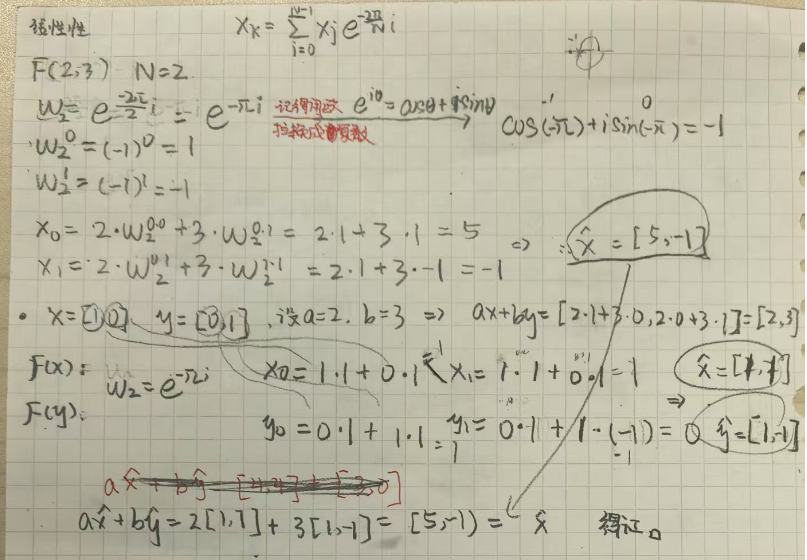 线性性
X_k = \sum_{j=0}^{N-1} x_j e^{\frac{-2π}{N} i}
F(2,3) N=2
W_2 = e^{\frac{-2π}{2} i} = e^{-πi} 记得用欧拉换成复数 e^{iθ} = cosθ + isinθ
cos(-π) + i sin(-π) = -1
-1 0
W_2^0 = (-1)^0 = 1
W_2^1 = (-1)^1 = -1
X_0 = 2·W_2^{0·0} + 3·W_2^{0·1} = 2·1 + 3·1 = 5
X_1 = 2·W_2^{0·1} + 3·W_2^{1·1} = 2·1 + 3·-1 = -1
⇒ ∴ x̂ = [5,-1]
• x=[1,0] y=[0,1], 设a=2, b=3 ⇒ ax+by=[2·1+3·0, 2·0+3·1]=[2,3]
F(x): W_2 = e^{-πi} x_0 = 1·1 + 0·1 = 1 x_1 = 1·1 + 0·1 = 1 x̂=[1,1]
F(y): y_0 = 0·1 + 1·1 = 1 y_1 = 0·1 + 1·(-1) = -1 ⇒ ŷ=[1,-1]
ax̂ + bŷ = 2[1,1] + 3[1,-1] = [5,-1) = x̂ 得证。